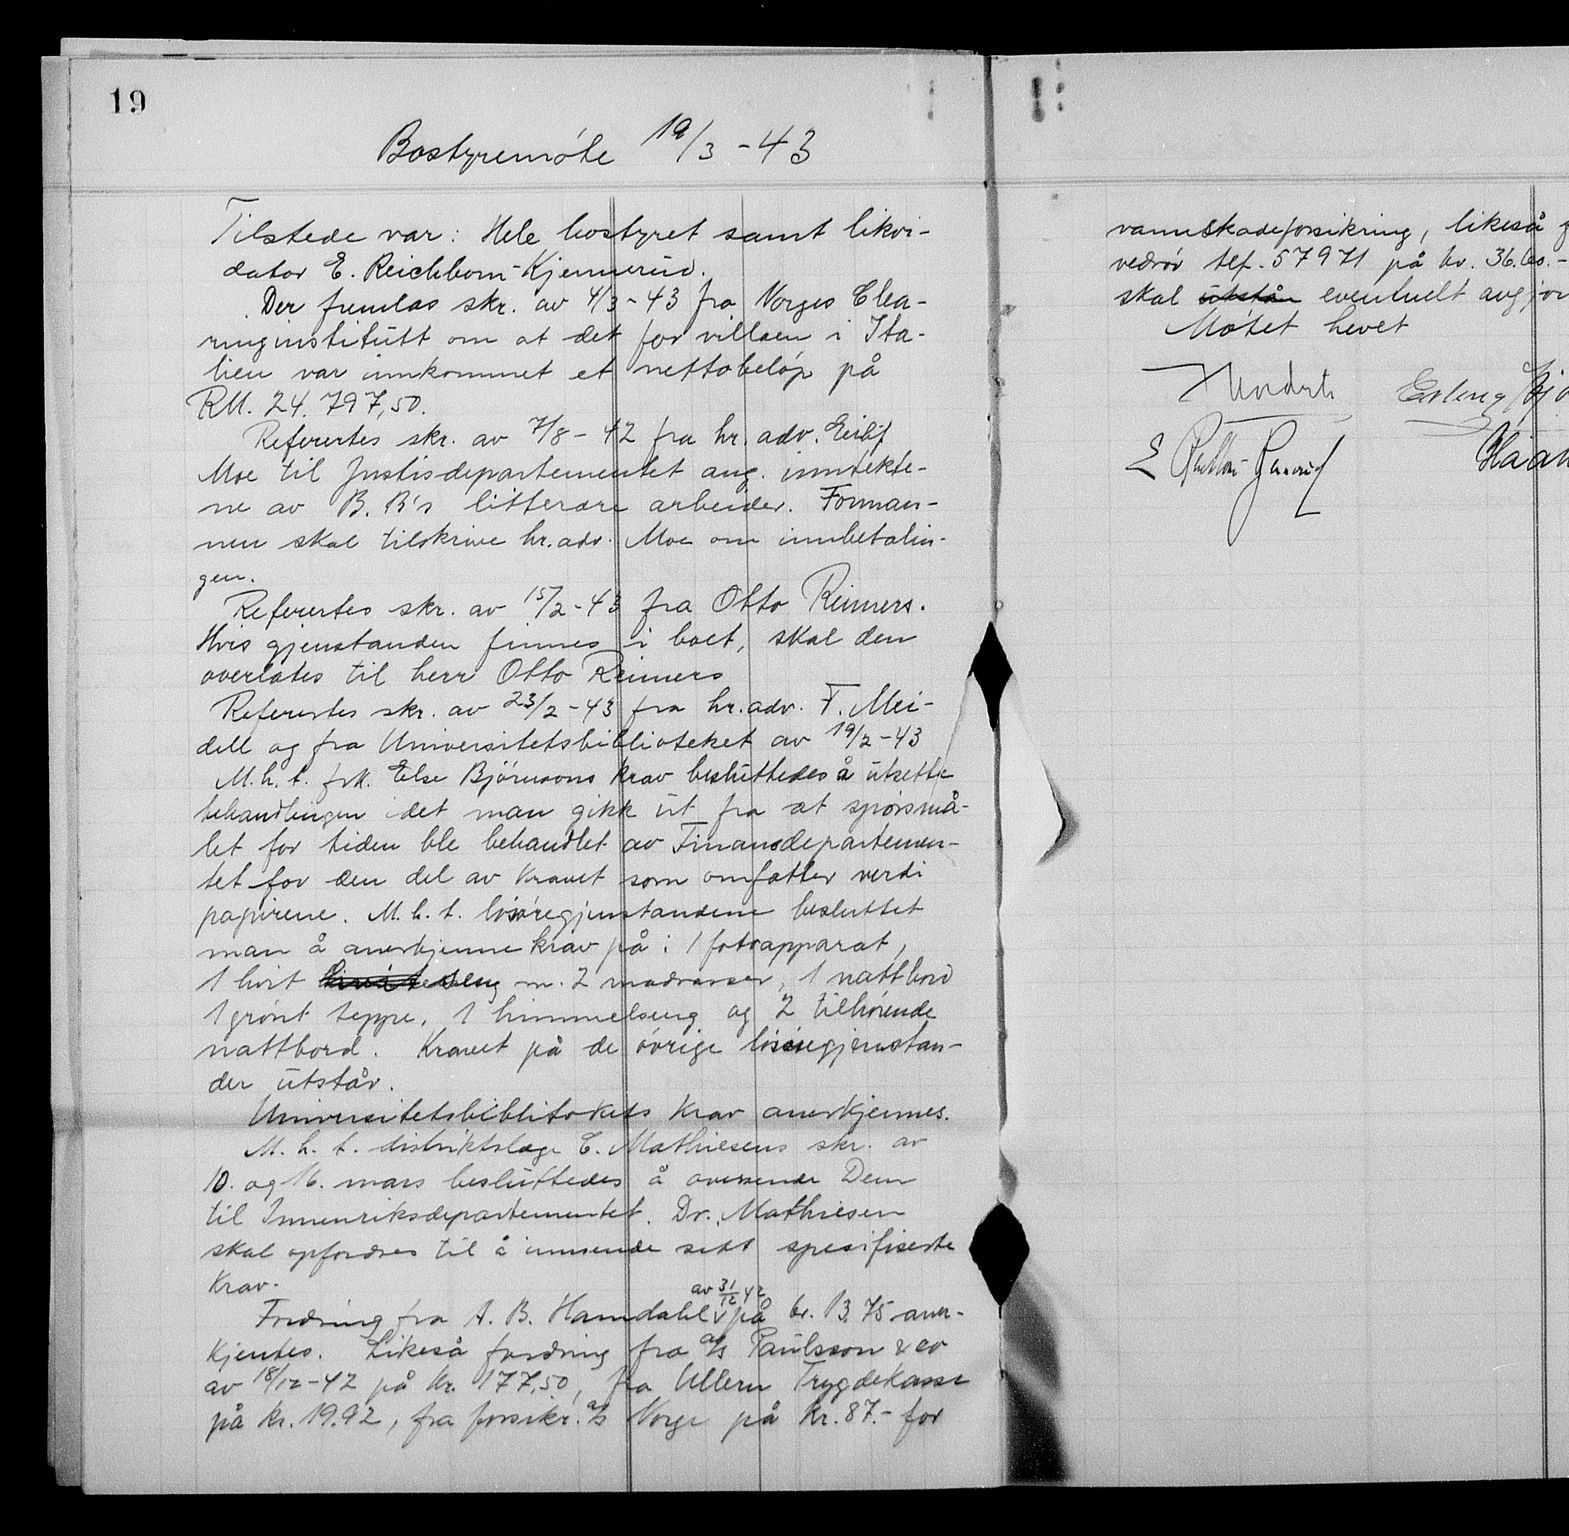 19
Bostyremöte 19/3 - 43
Tilstede var: Hele bostyret samt likvi-
dator E. Reichborn-Kjennerud.
Der fremlas skr. av 4/3 - 43 fra Norges Clea-
ringinstitutt om at det for villaen i Ita-
lien var innkommet et nettobeløp på
RM. 24.797,50.
Refererтes skr. av 7/8 - 42 fra hr. adv. Eilif
Moe til Justisdepartementet ang. inntekte-
ne av B. B's litterære arbeider. Forman-
nen skal tilskrive hr. adv. Moe om innbetalin-
gen.
Refertes skr. av 15/2 - 43 fra Otto Reimers.
Hvis gjenstanden finnes i boet, skal den
overlates til herr Otto Reimers
Refererтes skr. av 23/2 - 43 fra hr. adv. F. Mei-
dell og fra Universitetsbiblioteket av 19/2 - 43
M.h.t. frk. Else Björnsons krav besluttedes å utsette
behandlingen idet man gikk ut fra at spörsmå-
let for tiden ble behandlet av Finansdepartemen-
tet for den del av kravet som omfatter verdi
papirene. M.h.t. lösöregjenstandene besluttet
man å anerkjenne krav på: 1 fotoapparat,
1 hvit seng m. 2 madrasser, 1 nattbord
1 grönt teppe, 1 himmelseng og 2 tilhörende
nattbord. Kravet på de övrige lösöregjenstan-
der utstår.
Universitetsbibliotekets krav anerkjennes.
M.h.t. distriktslæge C. Mathiesens skr. av
10. og 16. mars besluttedes å oversende Dem
til Innenriksdepartementet. Dr. Mathiesen
skal opfordres til å innsende sitt spesifiserte
krav.
Fordring fra A. B. Hamdahl av 31/12 42 på kr. 13.75 aner-
kjentes. Likeså fordring fra a/s Paulsson & co
av 18/12 - 42 på kr. 177,50, fra Ullern Trygdekasse
på kr. 19.92, fra forsikr. a/s Norge på kr. 87.- for
vannskadeforsikring, likeså
vedrör tlf. 57971 på kr. 36.60.-
skal utstår eventuelt avgjör
Møtet hevet
Erling Bjö